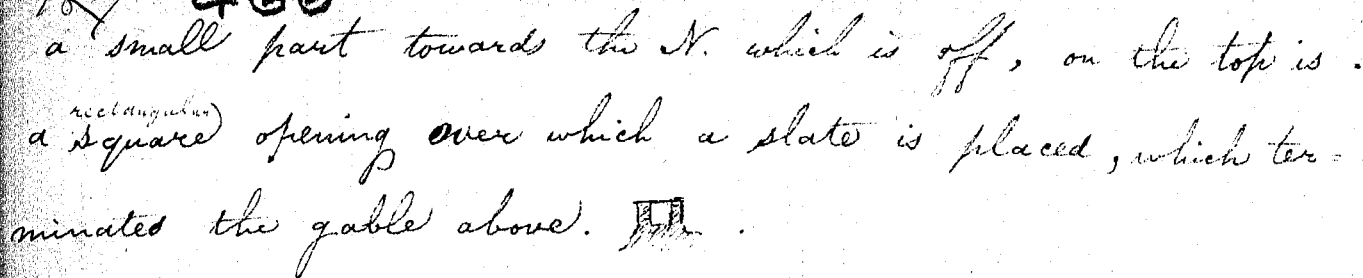 a small part towards the N. which is off, on the top is
rectangular
a square opening over which a slate is placed, which ter=
minates the gable above.